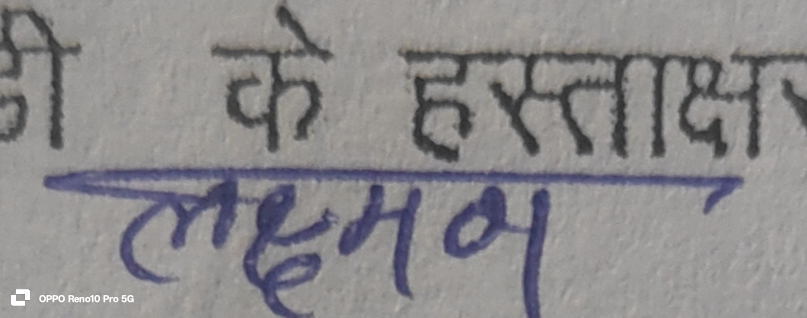 के हस्ताक्षर
लक्ष्मण
OPPO Reno10 Pro 5G